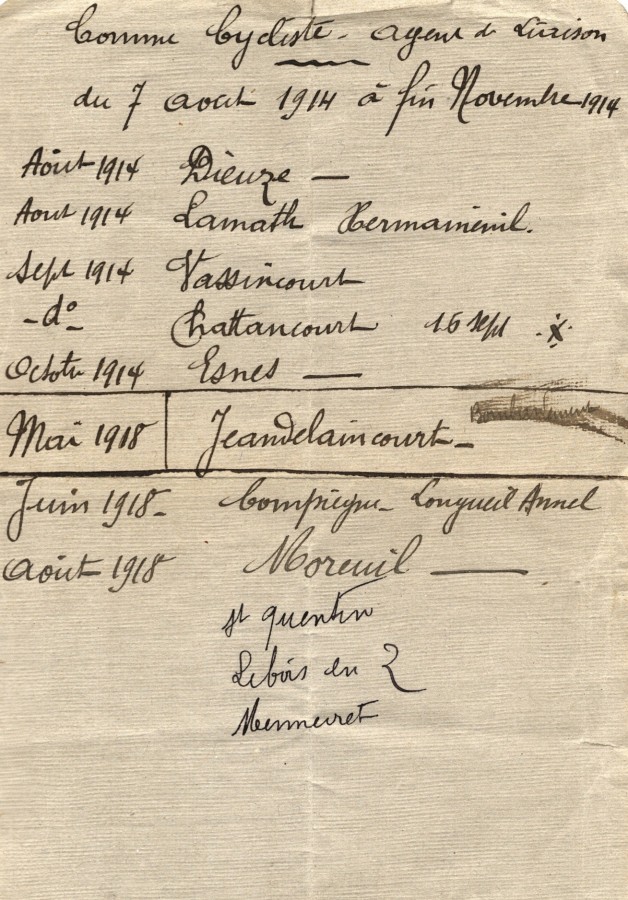 Comme Cycliste - agent de Liaison
du 7 aout 1914 à fin Novembre 1914
Août 1914 Dieuze —
Aout 1914 Lamath Xermaménil.
Sept 1914 Vassincourt
-d°- Chattancourt 16 sept .x.
Octobre 1914 Esnes —
Mai 1918 Jeandelaincourt -
Juin 1918 - Compiègne - Longueil Annel
Août 1918 Moreuil —
St Quentin
Le bois en Z
Mennevret